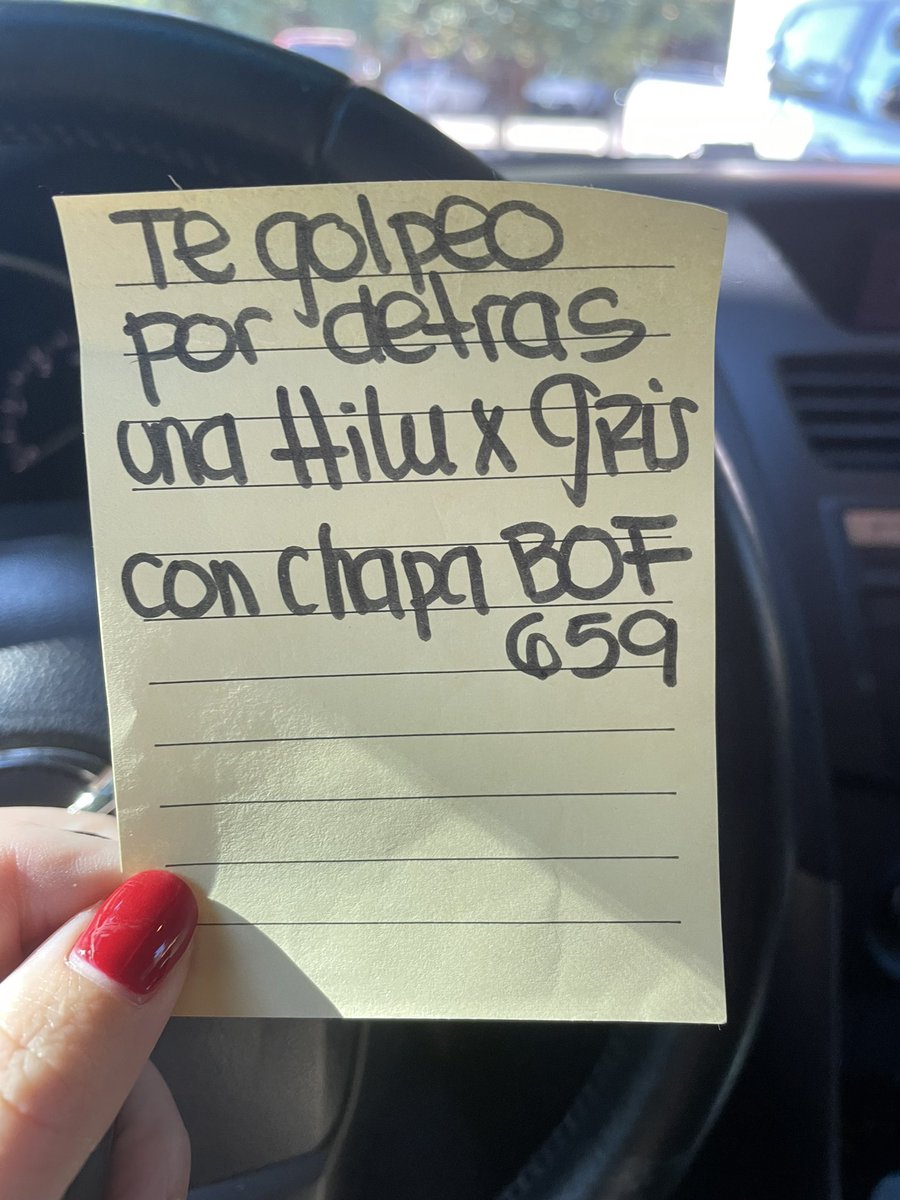 Te golpeo
por detras
una Hilux gris
con chapa BOF
659